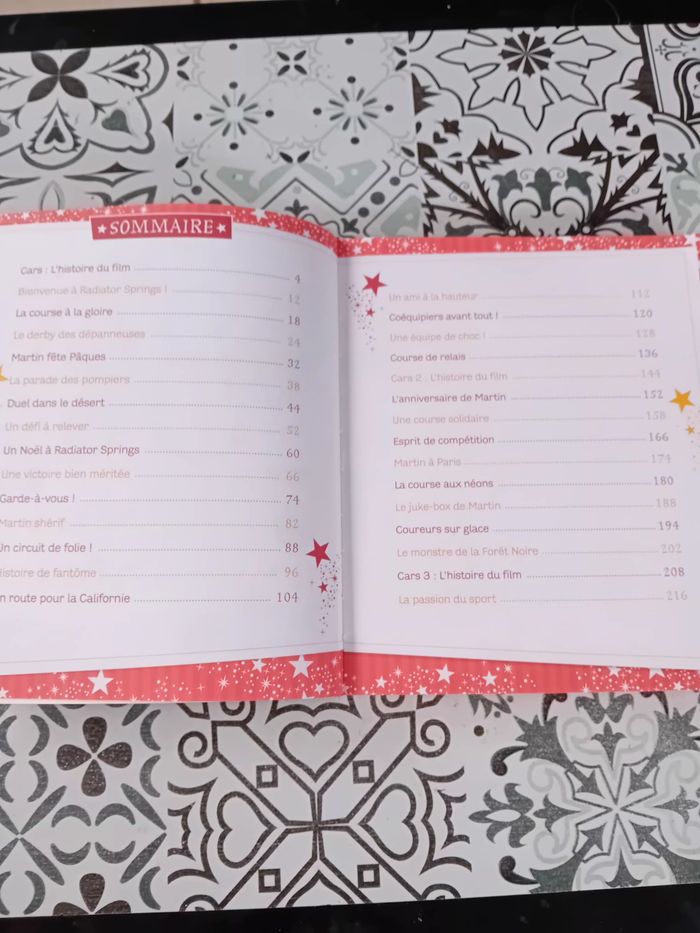 SOMMAIRE
Cars : L'histoire du film 4
Bienvenue à Radiator Springs ! 12
La course à la gloire 18
Le derby des dépanneuses 24
Martin fête Pâques 32
La parade des pompiers 38
Duel dans le désert 44
Un défi à relever 52
Un Noël à Radiator Springs 60
Une victoire bien méritée 66
Garde-à-vous ! 74
Martin shérif 82
Un circuit de folie ! 88
istoire de fantôme 96
n route pour la Californie 104
Un ami à la hauteur 112
Coéquipiers avant tout ! 120
Une équipe de choc ! 128
Course de relais 136
Cars 2 : L'histoire du film 144
L'anniversaire de Martin 152
Une course solidaire 158
Esprit de compétition 166
Martin à Paris 174
La course aux néons 180
Le juke-box de Martin 188
Coureurs sur glace 194
Le monstre de la Forêt Noire 202
Cars 3 : L'histoire du film 208
La passion du sport 216